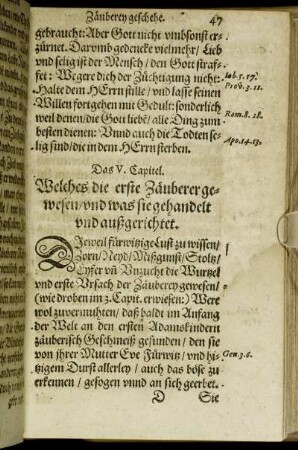 Zäuberey geschehe. 47
gebraucht: Aber Gott nicht vmbsonst er-
zürnet. Darumb gedencke viel mehr / Lieb
vnd selig ist der Mensch / den Gott straf-
fet: Wegere dich der Züchtigung nicht: Iob. 5. 17.
Halte dem HErrn stille / vnd lasse seinen Prov. 3. 11.
Willen fortgehen mit Gedult: sonderlich
weil denen / die Gott liebē / alle Ding zum Rom. 8. 28.
besten dienen: Vnnd auch die Todten se-
lig sind / die in dem HErrn sterben. Apo. 14. 13.
Das V. Capitel.
Welches die erste Zäuberer ge-
wesen / vnd was sie gehandelt
vnd außgerichtet.
DJeweil fürwitzige Lust zu wissen /
Zorn / Neyd / Mißgunst / Stoltz /
Eyfer vñ Vnzucht die Wurtzel
vnd erste Vrsach der Zäuberey gewesen /
(wie droben im 3. Capit. erwiesen:) Were
wol zuvermuhten / daß baldt im Anfang
der Welt an den ersten Adamskindern
zäuberisch Geschmeiß gefunden / den sie
von jhrer Mutter Eve Fürwitz / vnd hi- Gen. 3. 6.
tzigem Durst allerley / auch das böse zu
erkennen / gesogen vnnd an sich geerbet.
D Sie